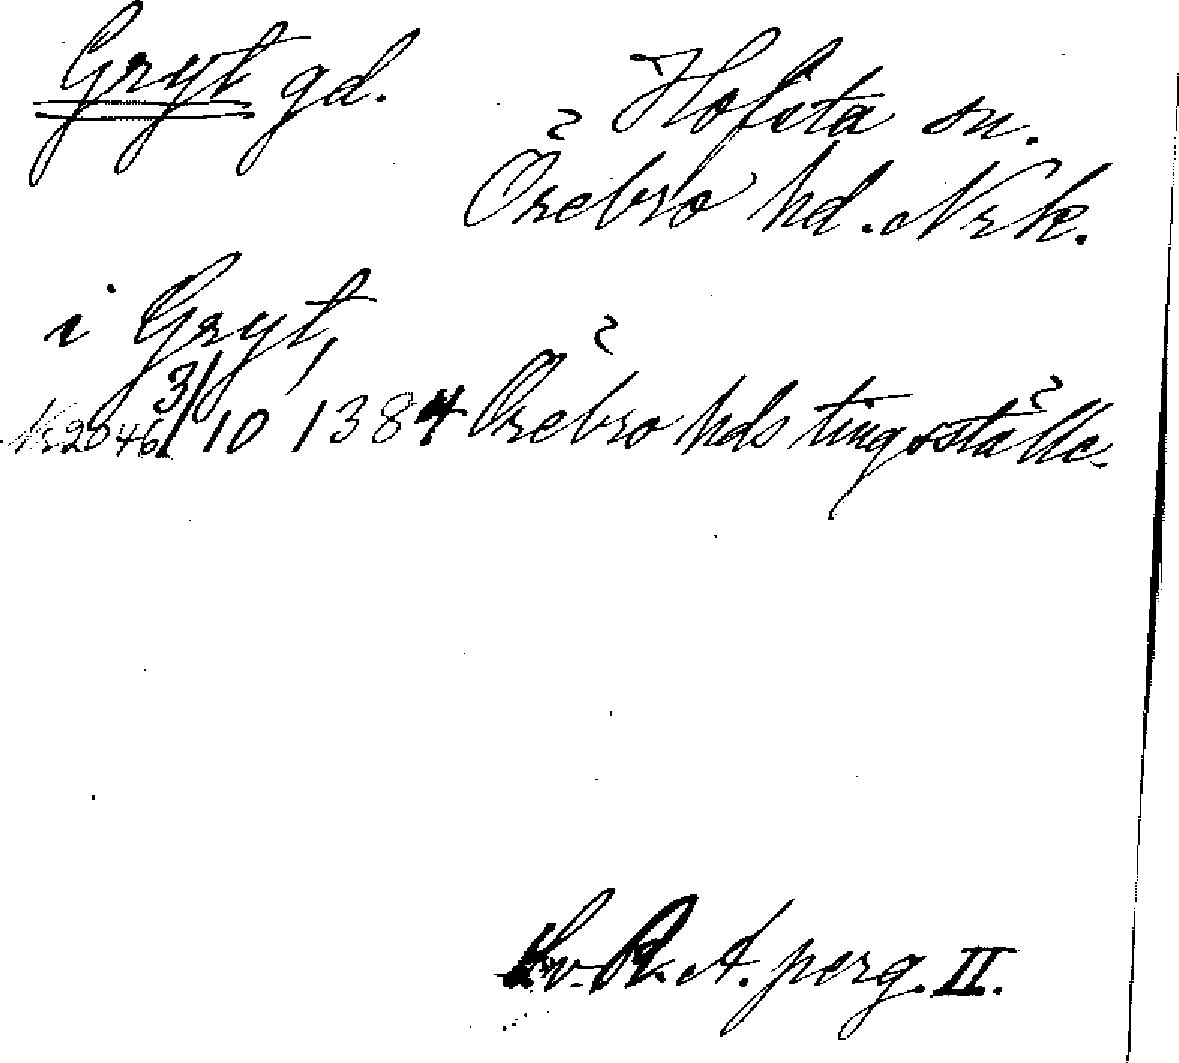 Gryt gd. Hofsta sn.
Örebro hd. Nrk.
i Gryt,
Nr 2046 3/10 1384 Örebro hds tingställe.
Sv. R. A. perg. II.